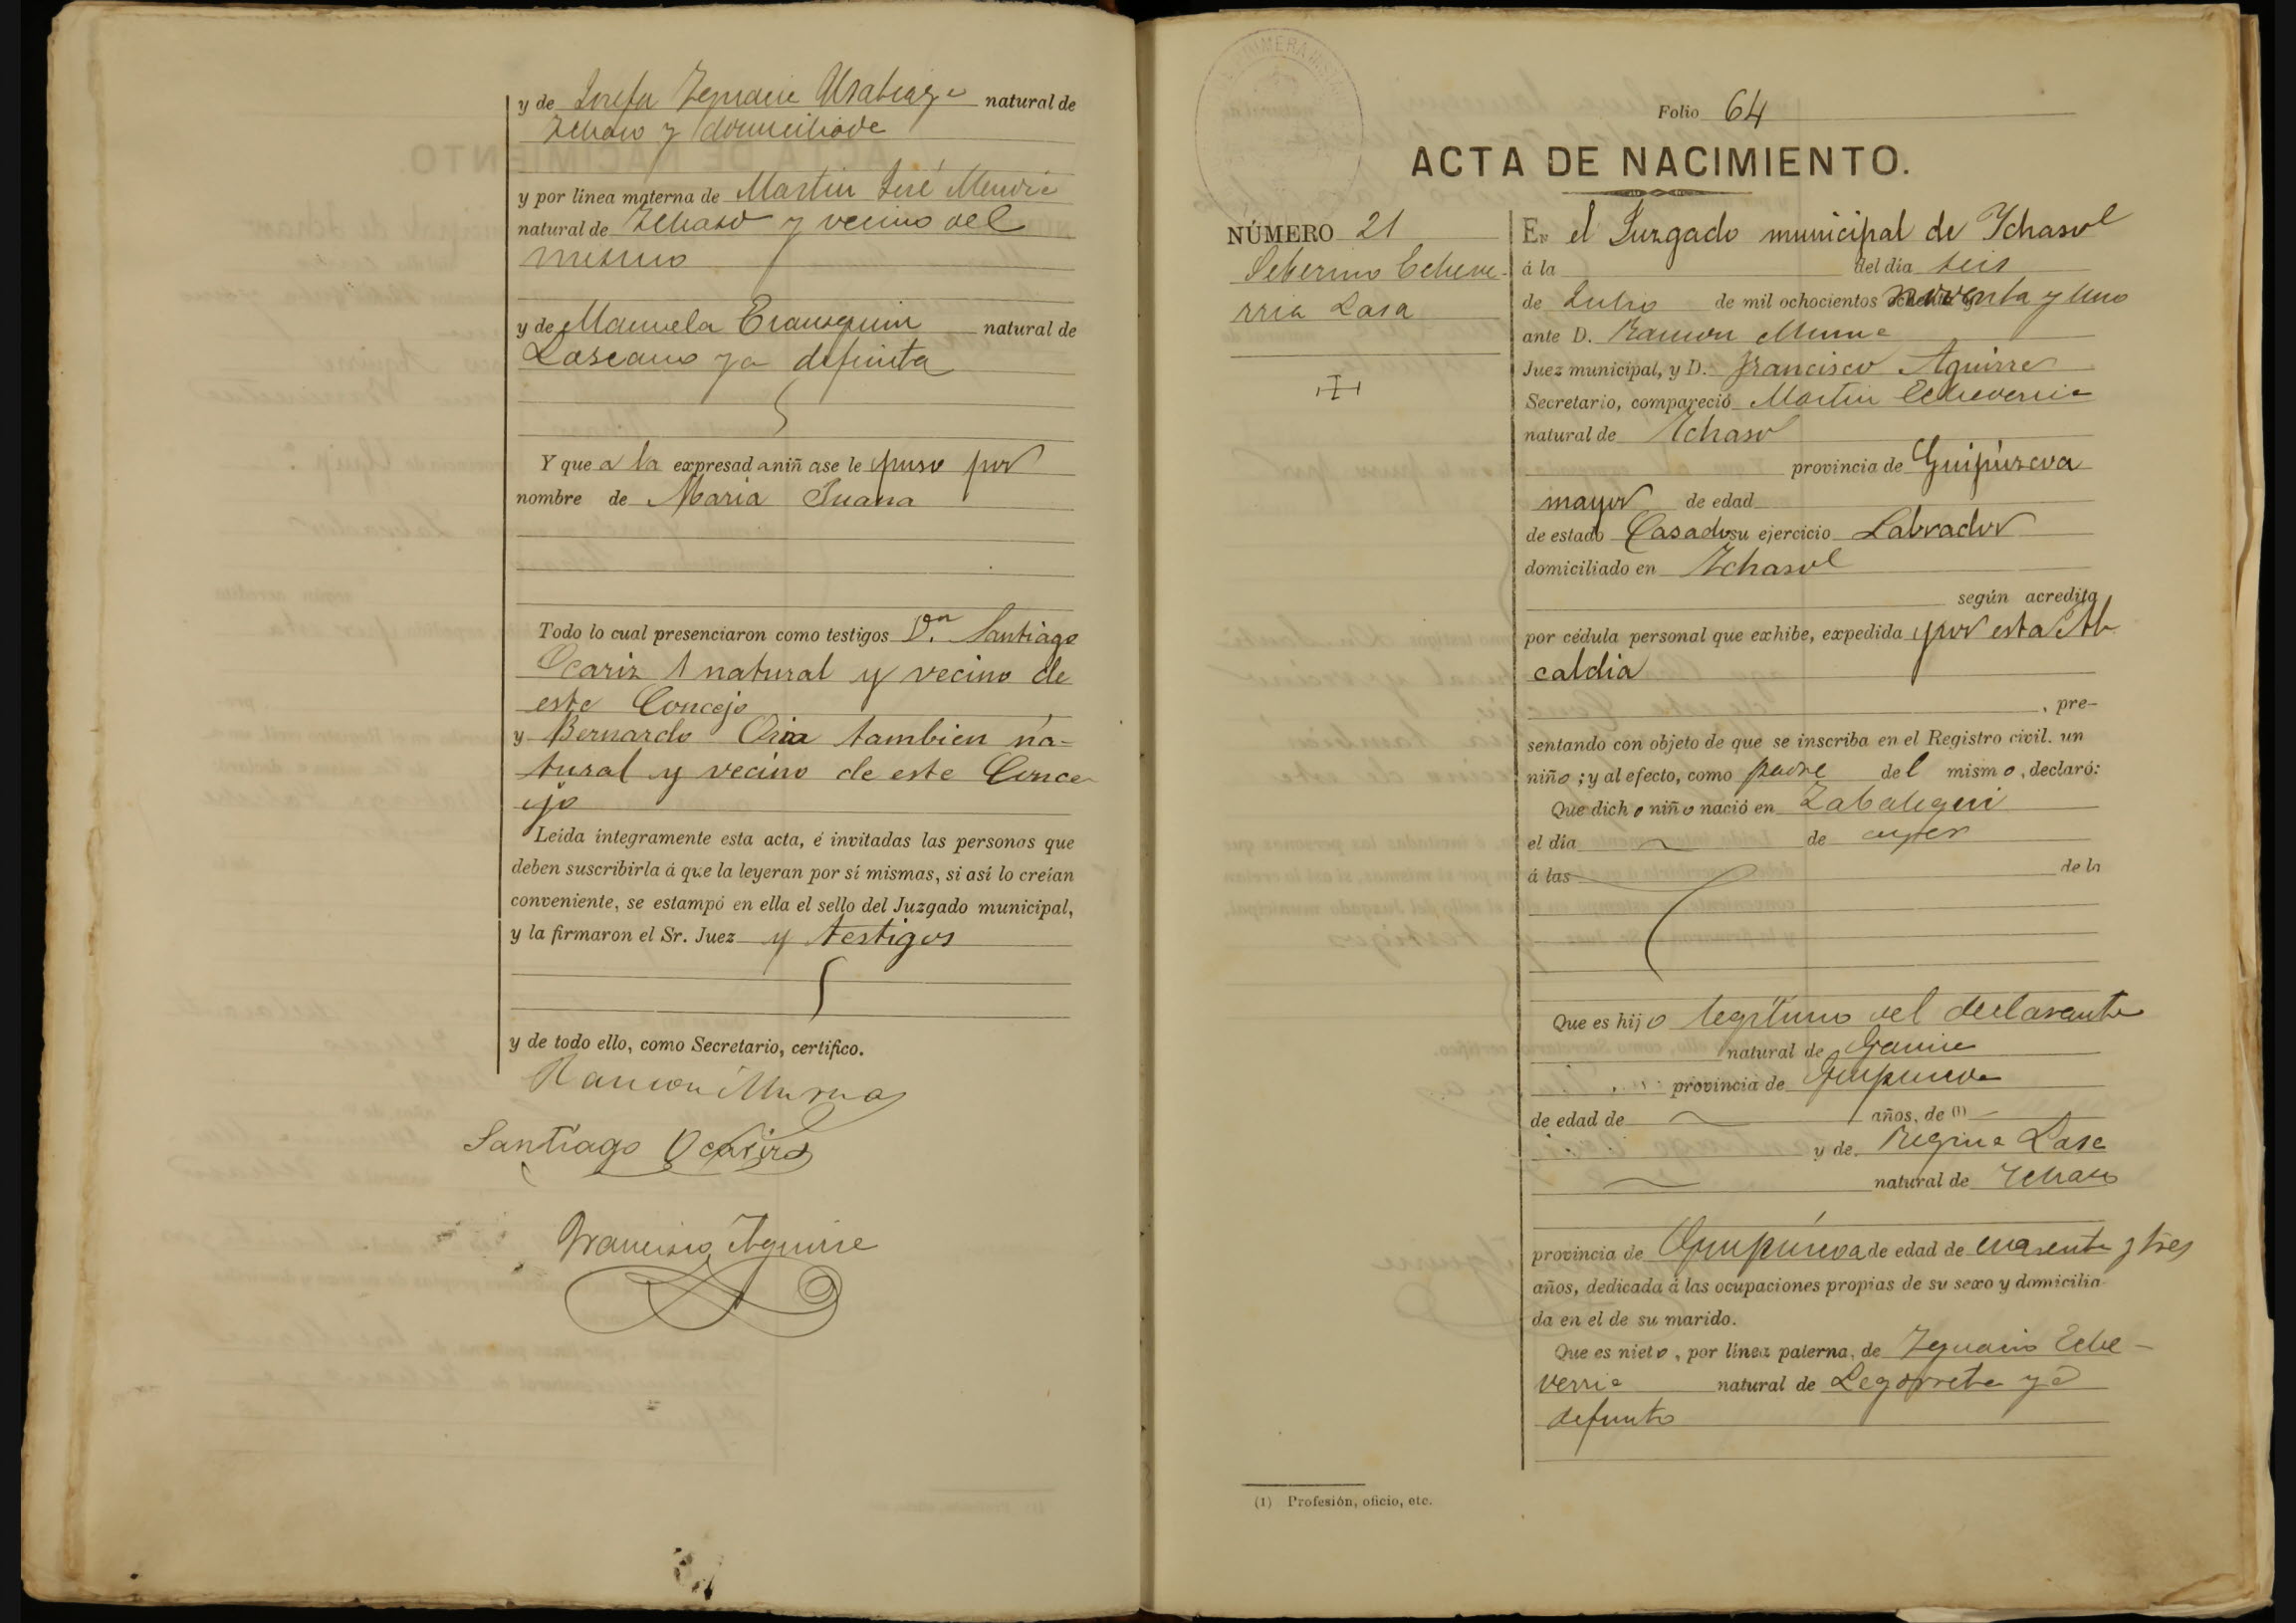 y de Josefa Ignacia Usabiaga natural de
Ichaso y domiciliada
y por línea materna de Martin José Mendia
natural de Ichaso y vecino del
mismo
y de Manuela Erausquin natural de
Lascano ya difunta
Y que a la expresad a niñ a se le puso por
nombre de Maria Juana
Todo lo cual presenciaron como testigos Dn. Santiago
Ocariz natural y vecino de
este Concejo
y Bernardo Oria tambien na-
tural y vecino de este Conce
jo
Leída íntegramente esta acta, é invitadas las personas que
deben suscribirla á que la leyeran por sí mismas, si así lo creían
conveniente, se estampó en ella el sello del Juzgado municipal,
y la firmaron el Sr. Juez y testigos
y de todo ello, como Secretario, certifico.
Ramon Murua
Santiago Ocariz
Francisco Aguirre
Folio 64
ACTA DE NACIMIENTO.
NÚMERO 21
Seberino Echeve-
rria Lasa
En el Juzgado municipal de Ychasol
á la del día seis
de Julio de mil ochocientos noventa y uno
ante D. Ramon Murua
Juez municipal, y D. Francisco Aguirre
Secretario, compareció Martin Echeverria
natural de Ichaso
provincia de Guipúzcoa
mayor de edad
de estado Casado su ejercicio Labrador
domiciliado en Ichasol
según acredita
por cédula personal que exhibe, expedida por esta Al
caldia
, pre-
sentando con objeto de que se inscriba en el Registro civil. un
niño ; y al efecto, como padre del mismo, declaró:
Que dicho niño nació en Zabalegui
el día de ayer
á las de la
Que es hijo legítimo del declarante
natural de Gavina
provincia de Guipuzcoa
de edad de años, de (1)
y de Regina Lasa
natural de Ichaso
provincia de Guipúzcoa de edad de cuarenta y tres
años, dedicada á las ocupaciones propias de su sexo y domicilia-
da en el de su marido.
Que es nieto, por línea paterna, de Ignacio Eche-
verria natural de Legorreta ya
difunto
(1) Profesión, oficio, etc.